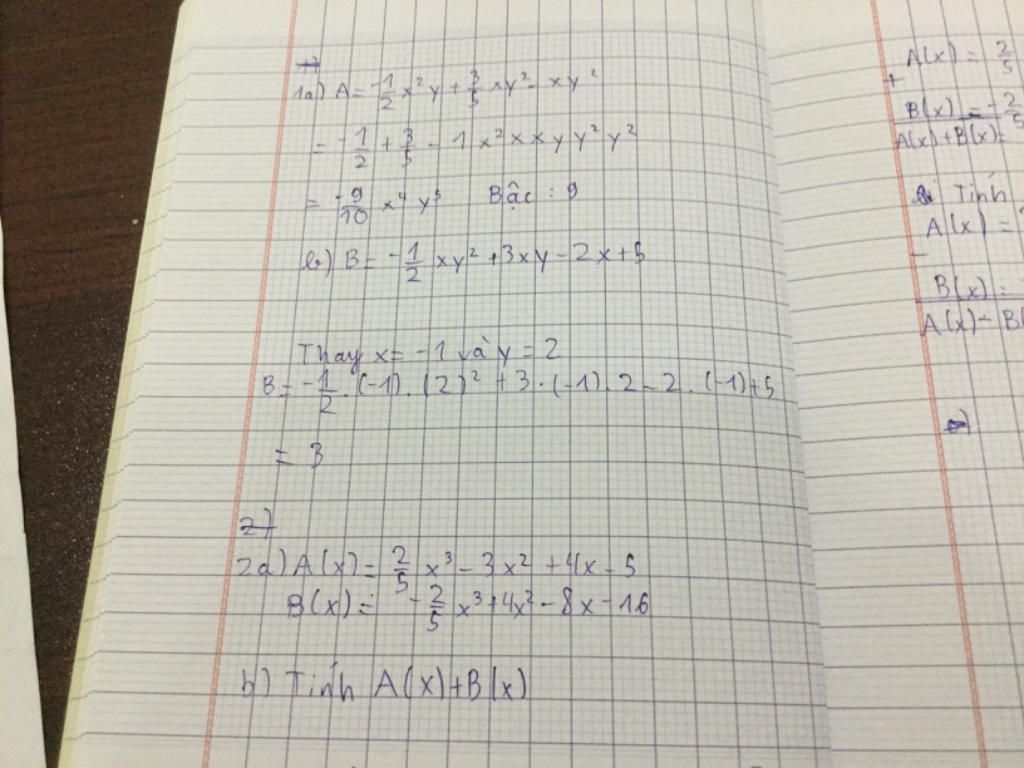 1a) A = -1/2 x²y + 3/5 xy² - xy²
= -1/2 + 3/5 - 1 x² x x y y² y²
= -9/10 x⁴ y⁵ Bậc : 9
b) B = -1/2 xy² + 3xy - 2x + 5
Thay x = -1 và y = 2
B = -1/2 . (-1) . (2)² + 3 . (-1) . 2 - 2 . (-1) + 5
= 3
2)
2a) A(x) = 2/5 x³ - 3x² + 4x - 5
B(x) = -2/5 x³ + 4x² - 8x - 16
b) Tính A(x) + B(x)
A(x) = 2/5
+
B(x) = -2/5
A(x) + B(x) =
Tính
A(x) =
-
B(x) =
A(x) - B(